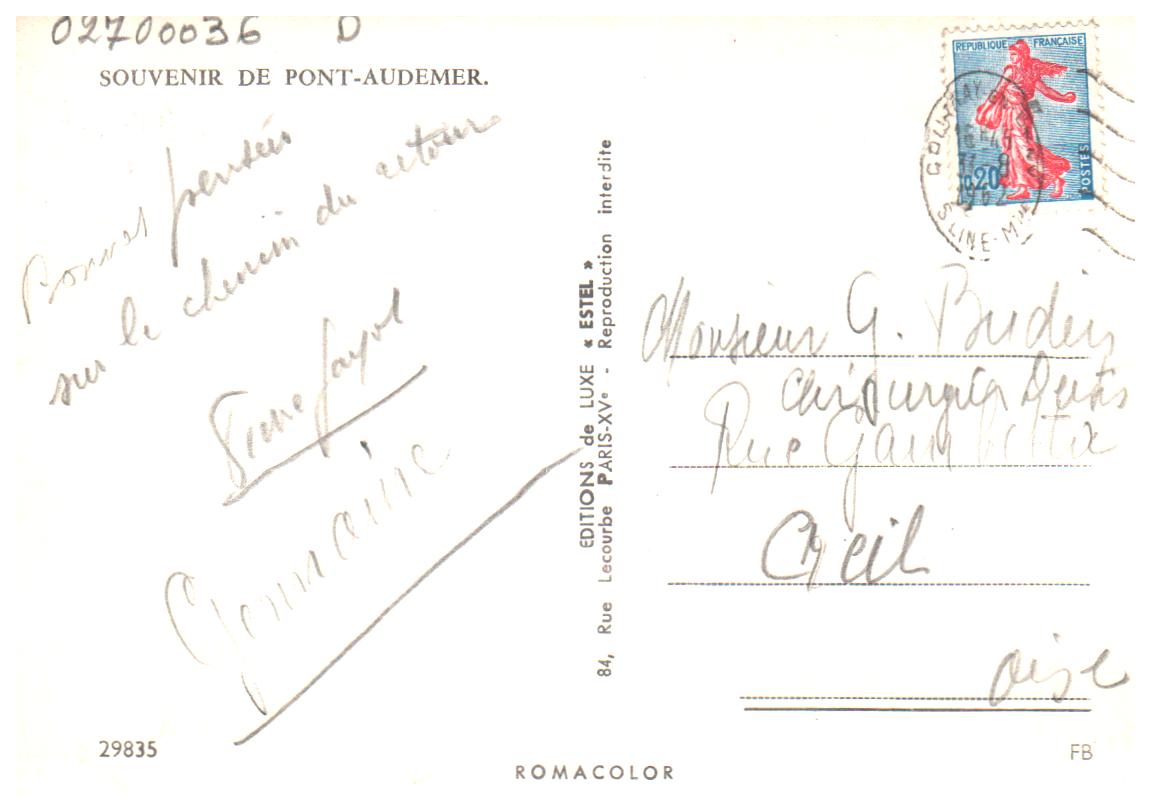 02700036 D
SOUVENIR DE PONT-AUDEMER.
Bonnes pensées
sur le chemin du retour
Germaine
EDITIONS de LUXE « ESTEL »
84, Rue Lecourbe PARIS-XVe - Reproduction interdite
REPUBLIQUE FRANÇAISE
0,20
POSTES
GOURNAY
S
Monsieur G. Budin
chirurgien Dentis
Rue Gambetta
Creil
Oise
29835
FB
ROMACOLOR